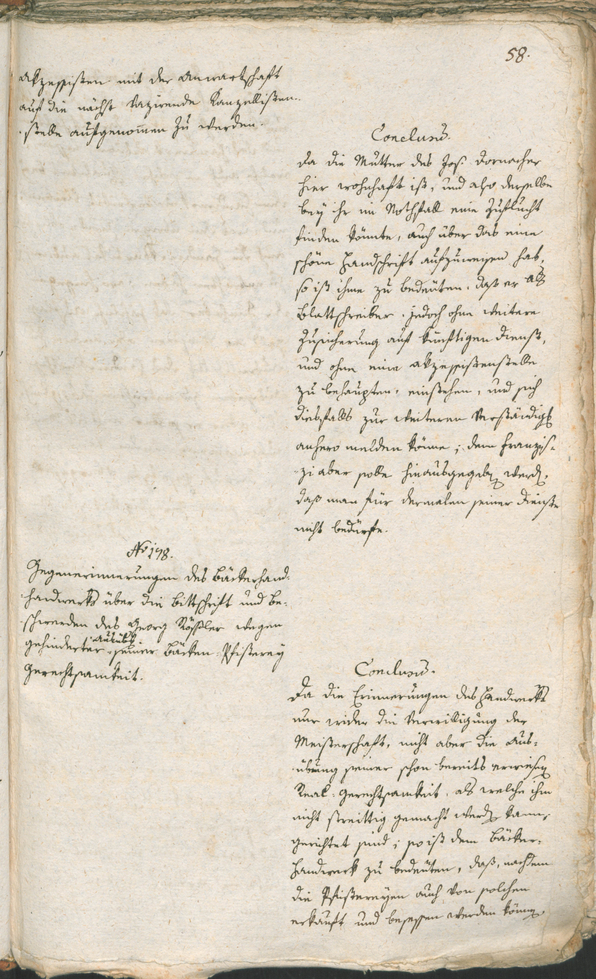 58.
akzessisten mit der Anwartschaft
auf die nächst vazirende Kanzellisten-
stelle aufgenommen zu werden.
Conclusum.
Da die Mutter des Jos. Dornacher
hier wohnhaft ist, und also derselbe
bey ihr im Nothfall eine Zuflucht
finden könnte, auch über das eine
schöne Handschrift aufzuweisen hab,
so ist ihme zu bedeuten, daß er als
Blattschreiber jedoch ohne weitere
Zusicherung auf künftigen Dienst,
und ohne eine akzessistenstelle
zu behaupten, einstehen, und sich
diesfalls zur weiteren Verständig
anhero melden könne; dem Franzis-
zi aber solle hinausgegeben werd,
daß man für dermalen seiner Dienste
nicht bedürfe.
No 178.
Gegenerinnerungen des Bäckerhand-
handwerks über die Bittschrift und Be-
schwerden des Georg Rößler wegen
gehinderter ausübg seiner Bäcken Pfisterey
Gerechtsamkeit.
Conclusum.
Da die Erinnerungen des Handwerks
nur wider die Verwilligung der
Meisterschaft, nicht aber die Aus-
übung seiner schon bereits erwiesen
Real-Gerechtsamkeit, als welche ihm
nicht streittig gemacht werd kann,
gerichtet sind; so ist dem Bäcker-
handwerk zu bedeuten, daß, nachdem
die Pfistereyen auch von solchen
erkauft und besessen werden können